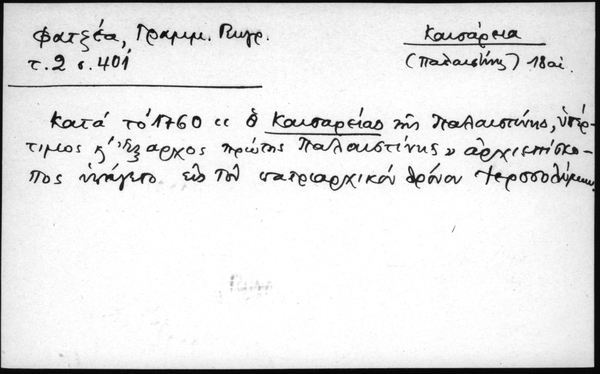 Φατζέα, Γραμμ. Πυγρ.
τ. 2 σ. 401
Καισάρεια
(Παλαιστίνης) 18 αἰ.
Κατά τό 1760 "ὁ Καισαρείας τῆς Παλαιστίνης, ὑπέρ-
τιμος κ' ἔξαρχος πρώτης Παλαιστίνης" ἀρχιεπίσκο-
πος ὑπάγετο εἰς τόν πατριαρχικόν θρόνον Ἱεροσολύμων